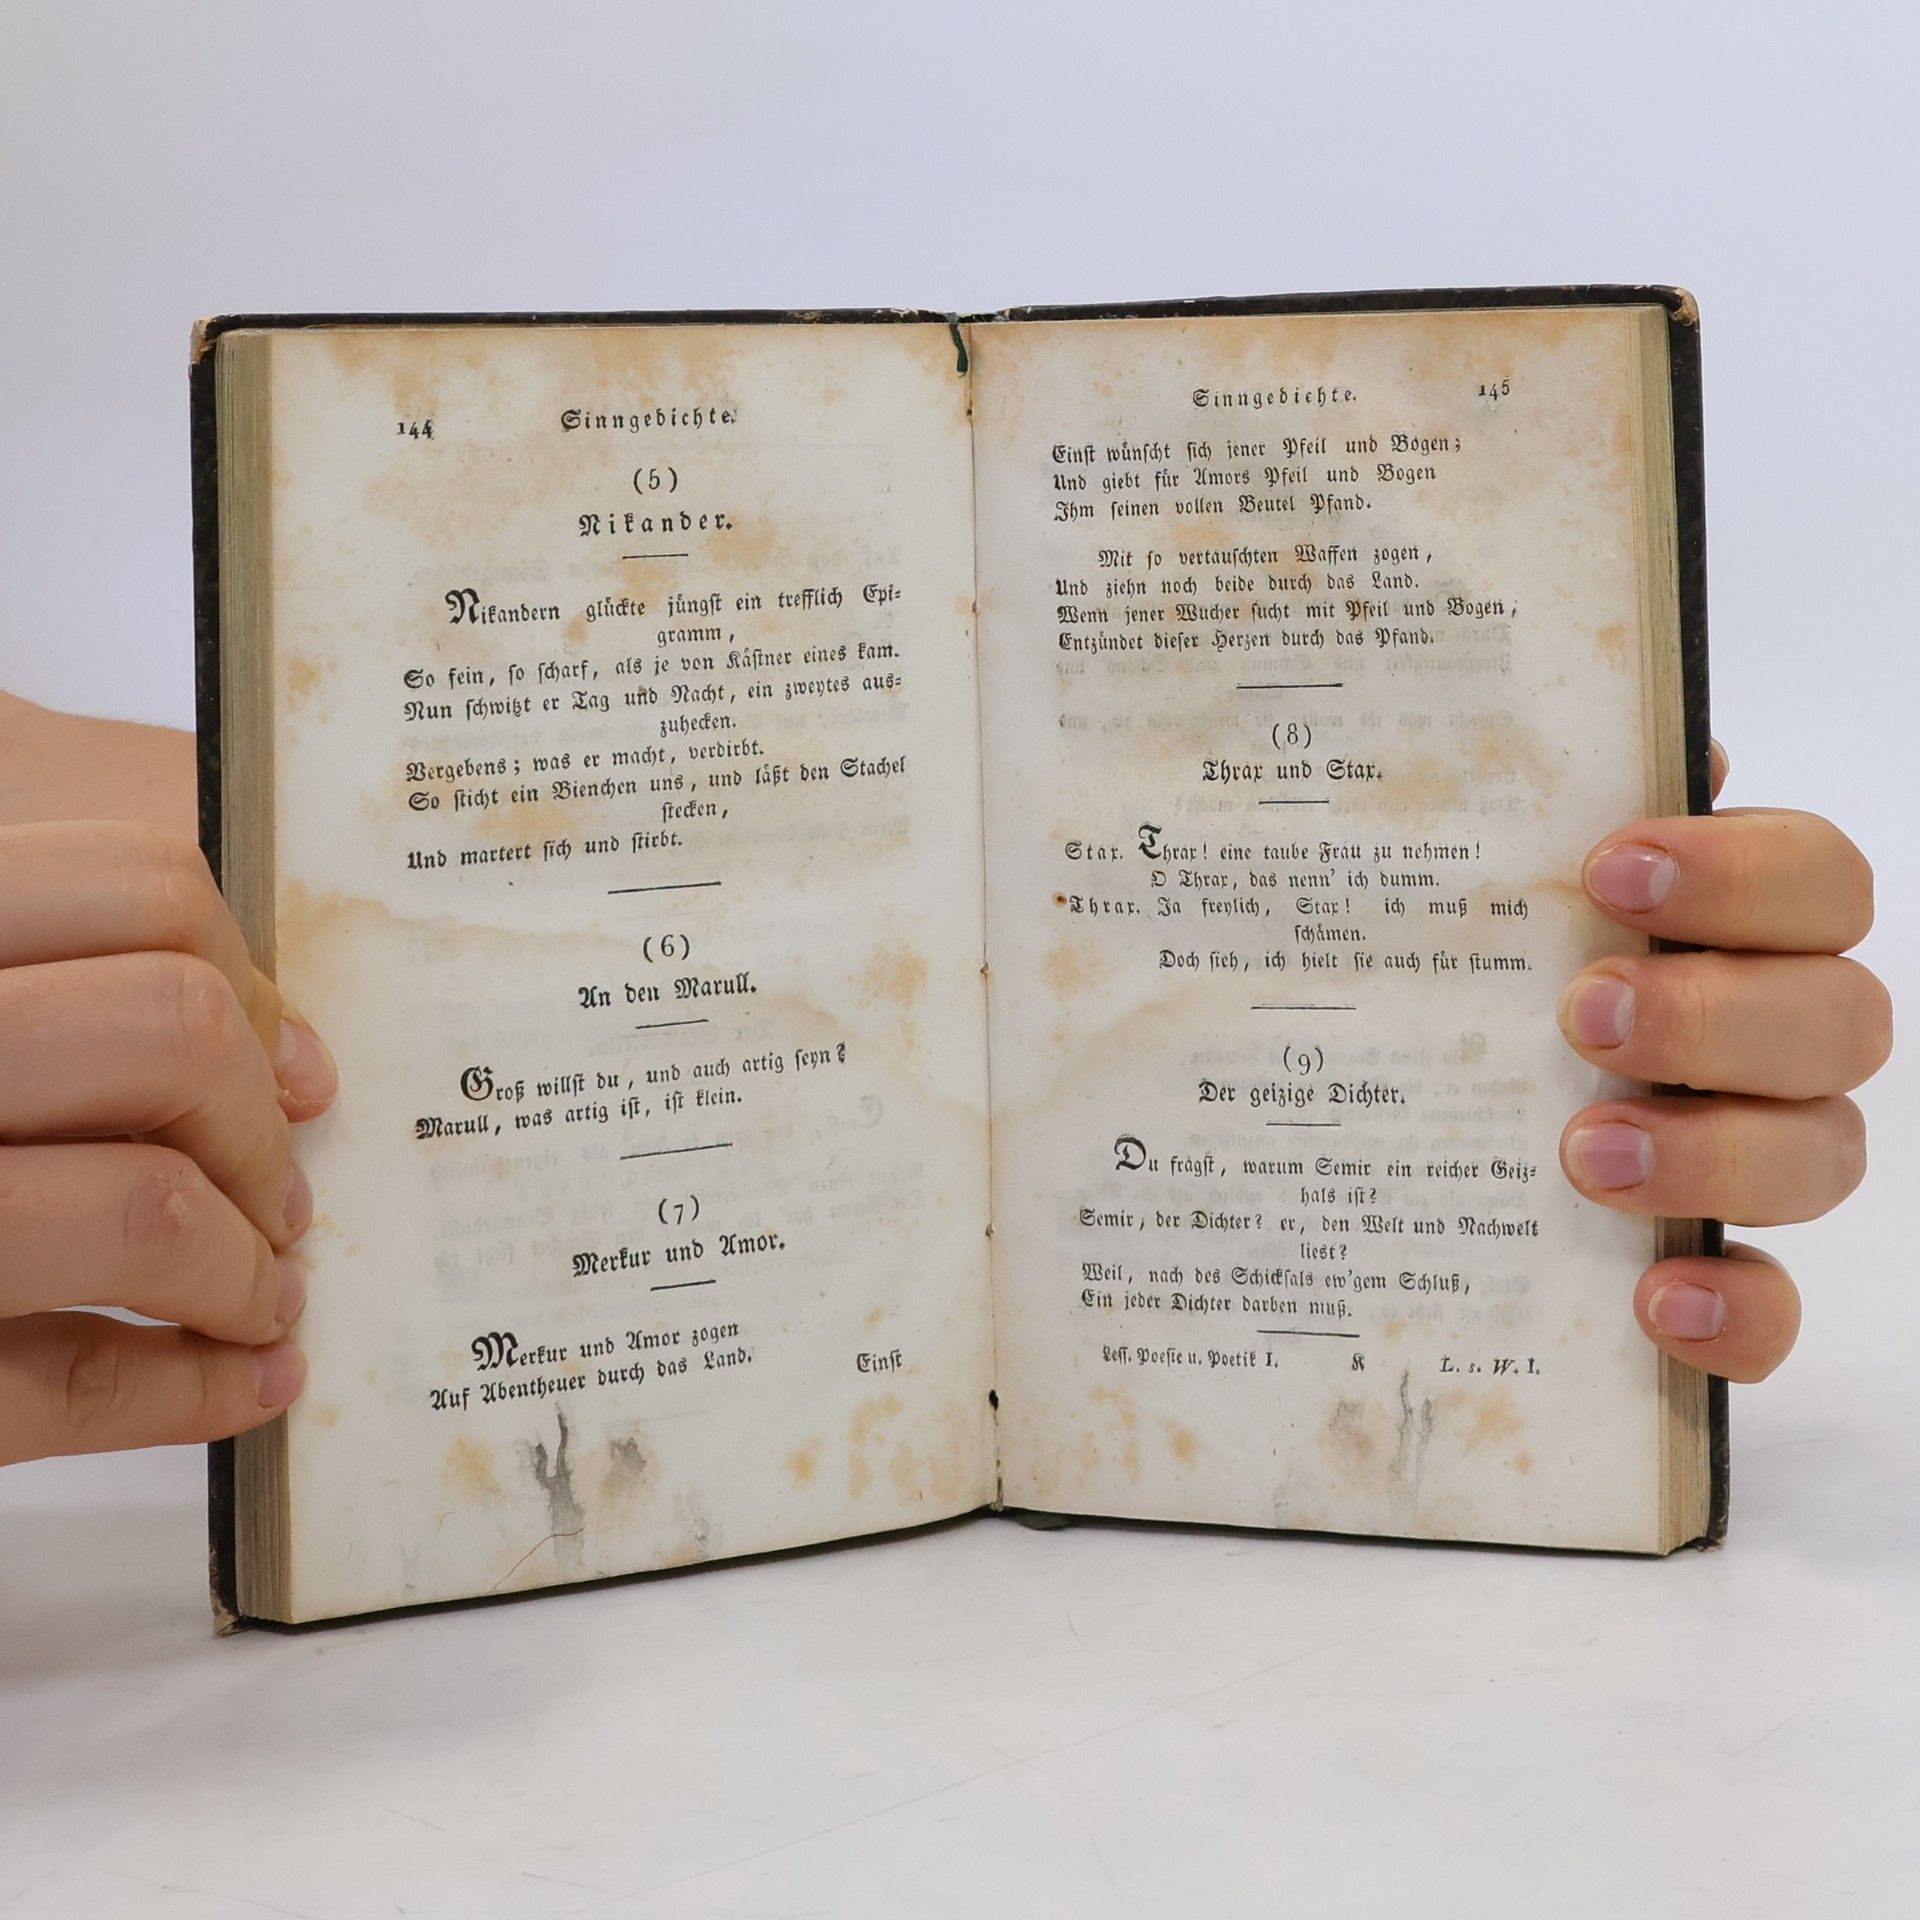 144 Sinngedichte.
(5)
Nikander.
Nikandern glückte jüngst ein trefflich Epi-
gramm,
So fein, so scharf, als je von Kästner eines kam.
Nun schwitzt er Tag und Nacht, ein zweytes aus-
zuhecken.
Vergebens; was er macht, verdirbt.
So sticht ein Bienchen uns, und läßt den Stachel
stecken,
Und martert sich und stirbt.
(6)
An den Marull.
Groß willst du, und auch artig seyn?
Marull, was artig ist, ist klein.
(7)
Merkur und Amor.
Merkur und Amor zogen
Auf Abentheuer durch das Land.
Einst
Sinngedichte. 145
Einst wünscht sich jener Pfeil und Bogen;
Und giebt für Amors Pfeil und Bogen
Ihm seinen vollen Beutel Pfand.
Mit so vertauschten Waffen zogen,
Und ziehn noch beide durch das Land.
Wenn jener Wucher sucht mit Pfeil und Bogen,
Entzündet dieser Herzen durch das Pfand.
(8)
Thrax und Stax.
Stax. Thrax! eine taube Frau zu nehmen!
O Thrax, das nenn' ich dumm.
Thrax. Ja freylich, Stax! ich muß mich
schämen.
Doch sieh, ich hielt sie auch für stumm.
(9)
Der geizige Dichter.
Du fragst, warum Semir ein reicher Geiz-
hals ist?
Semir, der Dichter? er, den Welt und Nachwelt
liest?
Weil, nach des Schicksals ew'gem Schluß,
Ein jeder Dichter darben muß.
Less. Poesie u. Poetik I. K L. s. W. I.